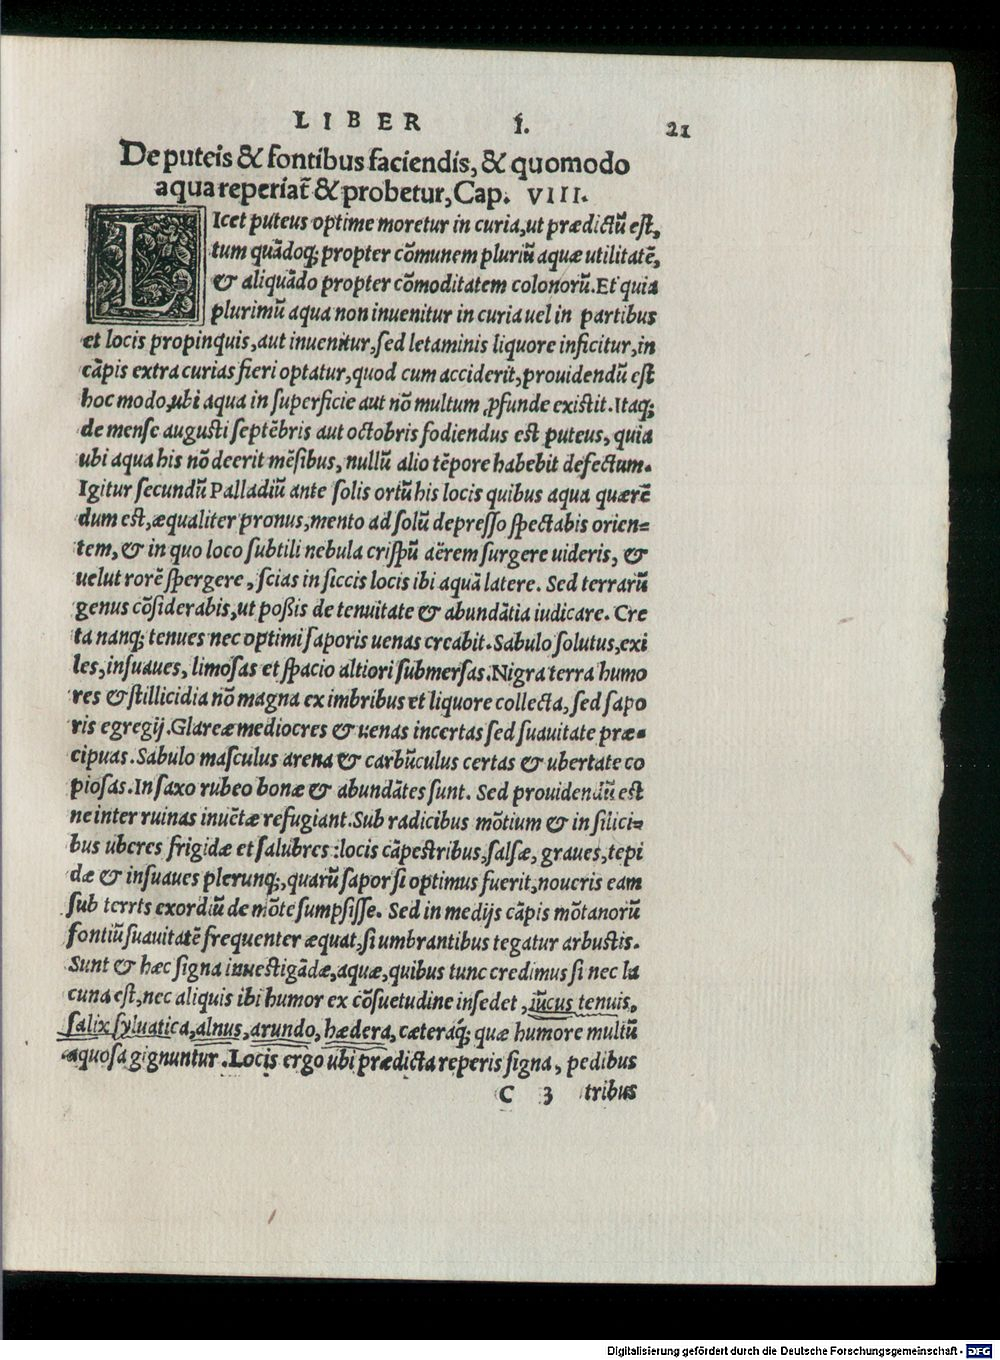 LIBER I. 21
De puteis & fontibus faciendis, & quomodo
aqua reperiat̃ & probetur, Cap. VIII.
LIcet puteus optime moretur in curia, ut prædictũ est,
tum quãdoq; propter cõmunem pluriũ aquæ utilitatẽ,
& aliquãdo propter cõmoditatem colonorũ. Et quia
plurimũ aqua non inuenitur in curia uel in partibus
et locis propinquis, aut inuenitur, sed letaminis liquore inficitur, in
cãpis extra curias fieri optatur, quod cum acciderit, prouidendũ est
hoc modo, ubi aqua in superficie aut nõ multum ꝓfunde existit. Itaq;
de mense augusti septẽbris aut octobris fodiendus est puteus, quia
ubi aqua his nõ deerit mẽsibus, nullũ alio tẽpore habebit defectum.
Igitur secundũ Palladiũ ante solis ortũ his locis quibus aqua quærẽ
dum est, æqualiter pronus, mento ad solũ depresso spectabis orien=
tem, & in quo loco subtili nebula crispũ aërem surgere uideris, &
uelut rorẽ spergere, scias in siccis locis ibi aquã latere. Sed terrarũ
genus cõsiderabis, ut poßis de tenuitate & abundãtia iudicare. Cre
ta nanq; tenues nec optimi saporis uenas creabit. Sabulo solutus, exi
les, insuaues, limosas et spacio altiori submersas. Nigra terra humo
res & stillicidia nõ magna ex imbribus et liquore collecta, sed sapo
ris egregij. Glareæ mediocres & uenas incertas sed suauitate præ=
cipuas. Sabulo masculus arena & carbũculus certas & ubertate co
piosas. In saxo rubeo bonæ & abundãtes sunt. Sed prouidendũ est
ne inter ruinas inuẽtæ refugiant. Sub radicibus mõtium & in silici=
bus uberes frigidæ et salubres: locis cãpestribus, salsæ, graues, tepi
dæ & insuaues plerunq;, quarũ sapor si optimus fuerit, noueris eam
sub terrts exordiũ de mõte sumpsisse. Sed in medijs cãpis mõtanorũ
fontiũ suauitatẽ frequenter æquat, si umbrantibus tegatur arbustis.
Sunt & hæc signa inuestigãdæ, aquæ, quibus tunc credimus si nec la
cuna est, nec aliquis ibi humor ex cõsuetudine insedet, iũcus tenuis,
salix syluatica, alnus, arundo, hædera, cæteraq́; quæ humore multũ
aquosa gignuntur. Locis ergo ubi prædicta reperis signa, pedibus
C 3 tribus
Digitalisierung gefördert durch die Deutsche Forschungsgemeinschaft - DFG